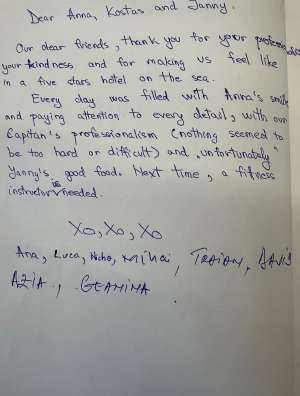 Dear Anna, Kostas and Janny.
Our dear friends, thank you for your
your kindness and for making us feel like
in a five stars hotel on the sea.
Every day was filled with Anna's smile
and paying attention to every detail, with our
Capitan's professionalism (nothing seemed to
be too hard or difficult) and „unfortunately"
Yanny's good food. Next time, a fitness
instructor is needed.
Xo, Xo, Xo
Ana, Luca, Mihai, TRAIAN,
GEANINA